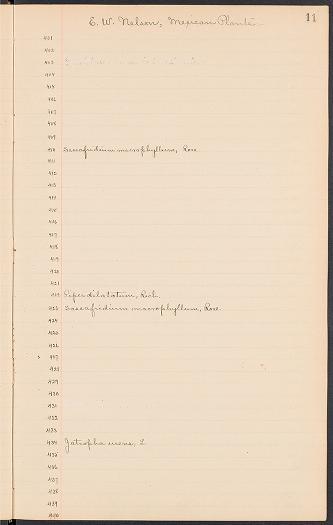 11
E. W. Nelson, Mexican Plants
401
402
403
404
405
406
407
408
409
410 Sassafridium macrophyllum, Rose
411
412
413
414
415
416
417
418
419
420
421
422 Piper dilatatum, Rich.
423 Sassafridium macrophyllum, Rose.
424
425
426
427
428
429
430
431
432
433
434 Jatropha urens, L
435
436
437
438
439
440